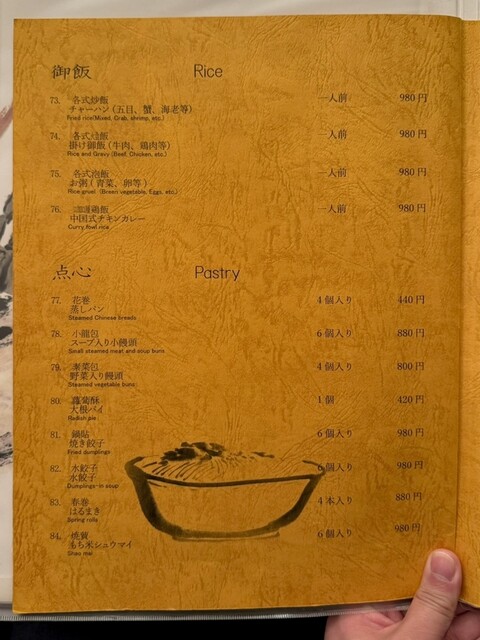 御飯 Rice
73. 各式炒飯 一人前 980円
チャーハン（五目、蟹、海老等）
Fried rice(Mixed, Crab, shrimp, etc.)
74. 各式燴飯 一人前 980円
掛け御飯（牛肉、鶏肉等）
Rice and Gravy (Beef, Chicken, etc.)
75. 各式泡飯 一人前 980円
お粥（青菜、卵等）
Rice gruel (Breen vegetable, Eggs, etc.)
76. 咖喱鶏飯 一人前 980円
中国式チキンカレー
Curry fowl rice
点心 Pastry
77. 花巻 4個入り 440円
蒸しパン
Steamed Chinese breads
78. 小籠包 6個入り 880円
スープ入り小饅頭
Small steamed meat and soup buns
79. 素菜包 4個入り 800円
野菜入り饅頭
Steamed vegetable buns
80. 蘿蔔酥 1個 420円
大根パイ
Radish pie
81. 鍋貼 6個入り 980円
焼き餃子
Fried dumplings
82. 水餃子 6個入り 980円
水餃子
Dumplings in soup
83. 春巻 4本入り 880円
はるまき
Spring rolls
84. 焼賣 6個入り 980円
もち米シュウマイ
Shao mai